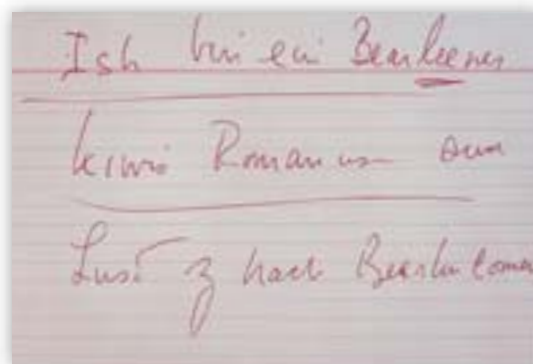 Ish bin ein Bearleener
kiwis Romanus sum
z nach Bearlin comen